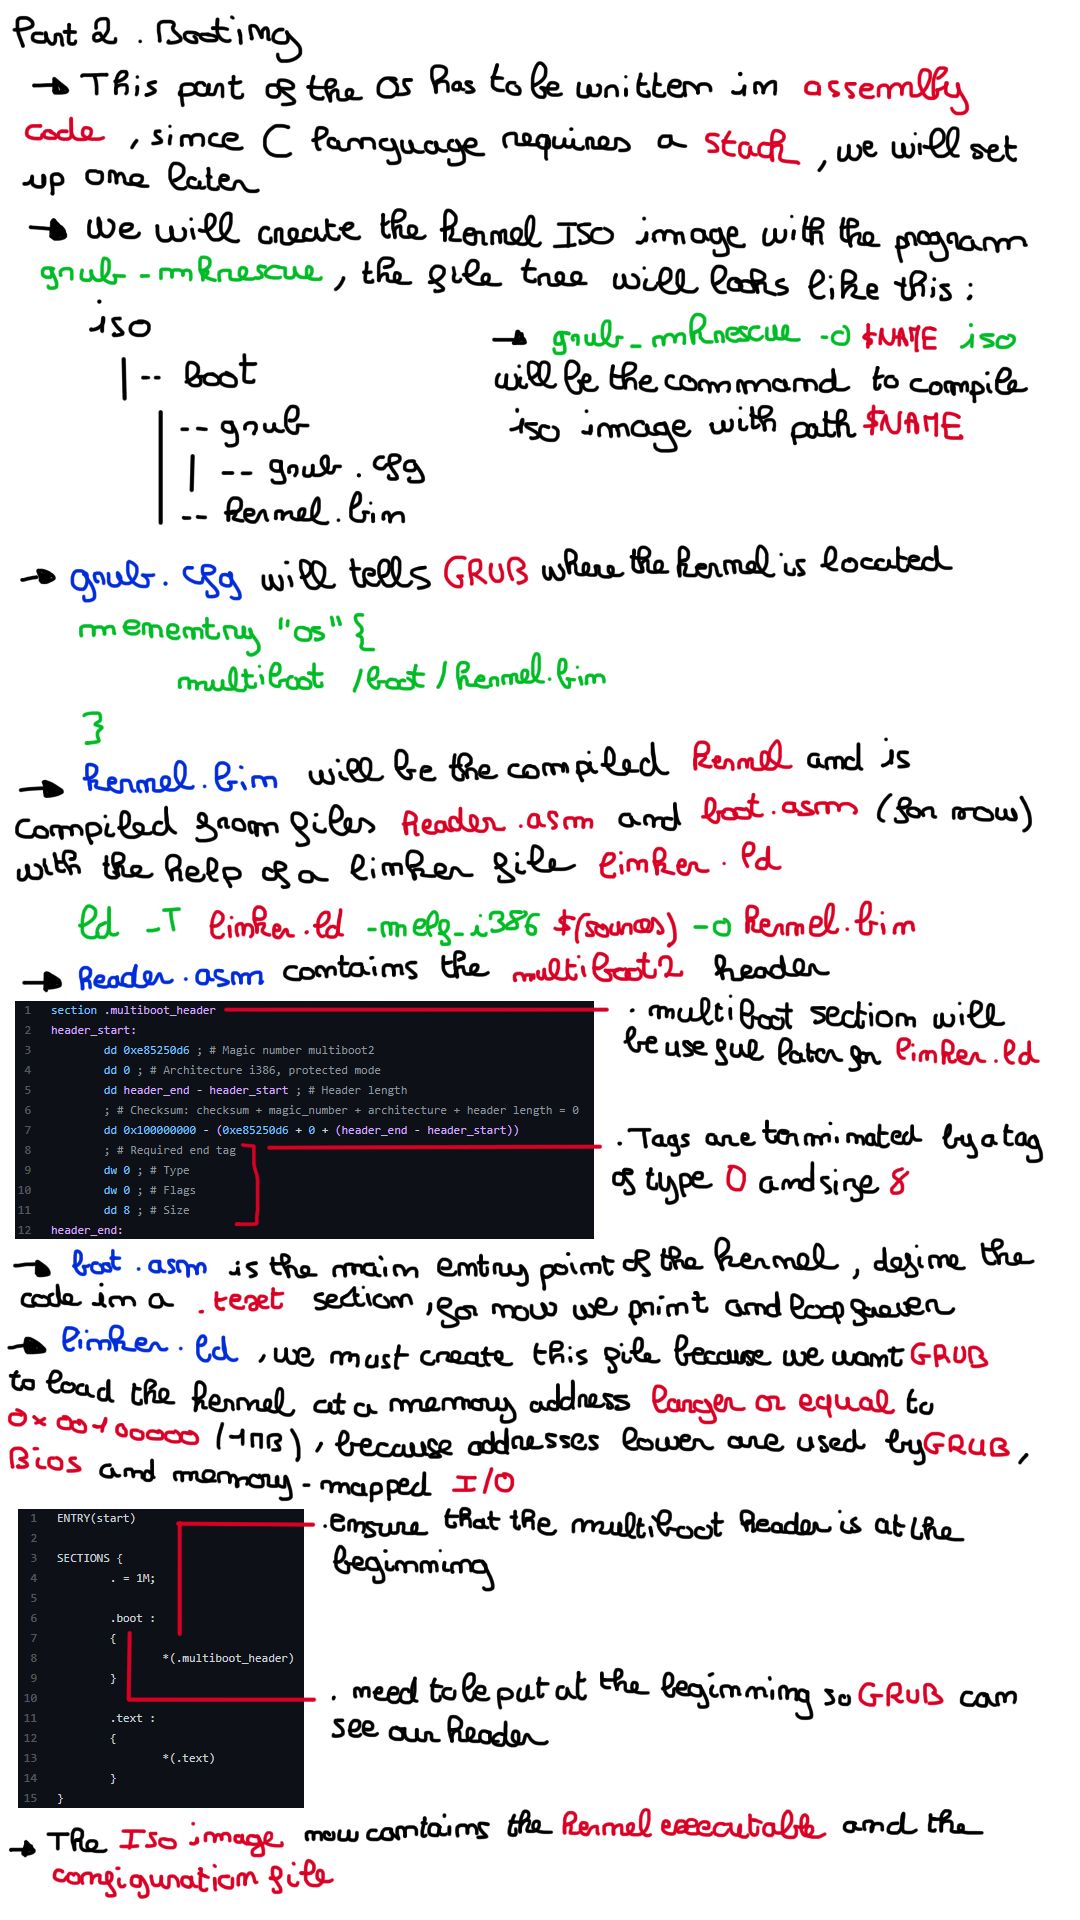 Part 2. Booting
→ This part of the OS has to be written in assembly
code, since C language requires a stack, we will set
up one later
→ We will create the kernel ISO image with the program
grub-mkrescue, the file tree will looks like this:
iso
|-- boot
|-- grub
| |-- grub.cfg
|-- kernel.bin
→ grub-mkrescue -o $NAME iso
will be the command to compile
iso image with path $NAME
→ grub.cfg will tells GRUB where the kernel is located
menentry "os" {
multiboot /boot/kernel.bin
}
→ kernel.bin will be the compiled kernel and is
compiled from files header.asm and boot.asm (for now)
with the help of a linker file linker.ld
ld -T linker.ld -melf_i386 $(sources) -o kernel.bin
→ header.asm contains the multiboot2 header
1 section .multiboot_header
2 header_start:
3 dd 0xe85250d6 ; # Magic number multiboot2
4 dd 0 ; # Architecture i386, protected mode
5 dd header_end - header_start ; # Header length
6 ; # Checksum: checksum + magic_number + architecture + header length = 0
7 dd 0x100000000 - (0xe85250d6 + 0 + (header_end - header_start))
8 ; # Required end tag
9 dw 0 ; # Type
10 dw 0 ; # Flags
11 dd 8 ; # Size
12 header_end:
. multiboot section will
be useful later for linker.ld
. Tags are terminated by a tag
of type 0 and size 8
→ boot.asm is the main entry point of the kernel, define the
code in a .text section, for now we print and loop forever
→ linker.ld, we must create this file because we want GRUB
to load the kernel at a memory address larger or equal to
0x00100000 (1MB), because addresses lower are used by GRUB,
Bios and memory-mapped I/O
1 ENTRY(start)
2
3 SECTIONS {
4 . = 1M;
5
6 .boot :
7 {
8 *(.multiboot_header)
9 }
10
11 .text :
12 {
13 *(.text)
14 }
15 }
. ensure that the multiboot header is at the
beginning
. need to be put at the beginning so GRUB can
see our header
→ The Iso image now contains the kernel executable and the
configuration file